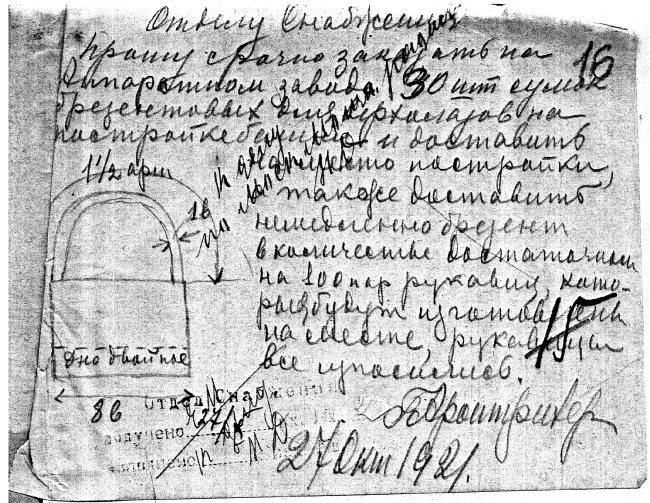 Отделу Снабжения
16
Прошу срочно заказать на
Аппаратном заводе 30 шт сумок
брезентовых для верхолазов на
постройке башни и доставить
место постройки,
также доставить
немедленно брезент
в количестве достаточном
на 100 пар рукавиц, кото-
рые будут изготовлены
на месте, рукавицы
все износились.
15
1½ арш
1в
Дно двойное
8в
Отдел Снабжения
получено 27/X
27 Окт 1921.